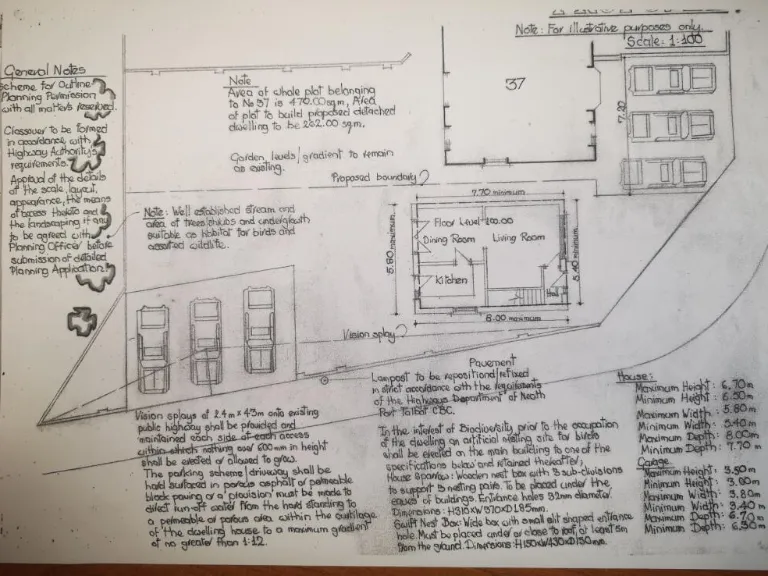 Note: For illustrative purposes only.
Scale: 1:100
General Notes
Scheme for Outline
Planning Permission
with all matters reserved.
Crossover to be formed
in accordance with
Highway Authority's
requirements.
Approval of the details
of the scale, layout,
appearance, the means
of access thereto and
the landscaping if any
to be agreed with
Planning Officer before
submission of detailed
Planning Application.
Note
Area of whole plot belonging
to No 37 is 470.00sq.m, Area
of plot to build proposed detached
dwelling to be 262.00 sq.m.
Garden levels/gradient to remain
as existing.
Proposed boundary
37
7.20
Note: Well established stream and
area of trees/shrubs and undergrowth
suitable as habitat for birds and
assorted wildlife.
7.70 minimum
5.80 maximum
5.40 minimum
8.00 maximum
Floor Level 100.00
Dining Room
Living Room
Kitchen
Hall
Vision splay
Pavement
Lampost to be repositiond/refixed
in strict accordance with the requirements
of the Highways Department of Neath
Port Talbot CBC.
In the interest of Biodiversity, prior to the occupation
of the dwelling an artificial nesting site for birds
shall be erected on the main building to one of the
specifications below and retained thereafter;
House Sparrow: Wooden nest box with 3 sub-divisions
to support 3 nesting pairs. To be placed under the
eaves of buildings. Entrance holes 32mm diameter.
Dimensions: H310xW370xD185mm.
Swift Nest Box: Wide box with small slit shaped entrance
hole. Must be placed under or close to roof, at least 5m
from the ground. Dimensions: H150xW430xD150mm.
Vision splays of 2.4m x 43m onto existing
public highway shall be provided and
maintained each side of each access
within which nothing over 600mm in height
shall be erected or allowed to grow.
The parking scheme/driveway shall be
hard surfaced in porous asphalt or permeable
block paving or a provision must be made to
direct run-off water from the hard standing to
a permeable or porous area within the curtilage
of the dwelling house to a maximum gradient
of no greater than 1:12.
House:
Maximum Height: 6.70m
Minimum Height: 6.50m
Maximum Width: 5.80m
Minimum Width: 5.40m
Maximum Depth: 8.00m
Minimum Depth: 7.70 m
Garage
Maximum Height: 3.50m
Minimum Height: 3.00m
Maximum Width: 3.80m
Minimum Width: 3.40m
Maximum Depth: 6.70m
Minimum Depth: 6.30m